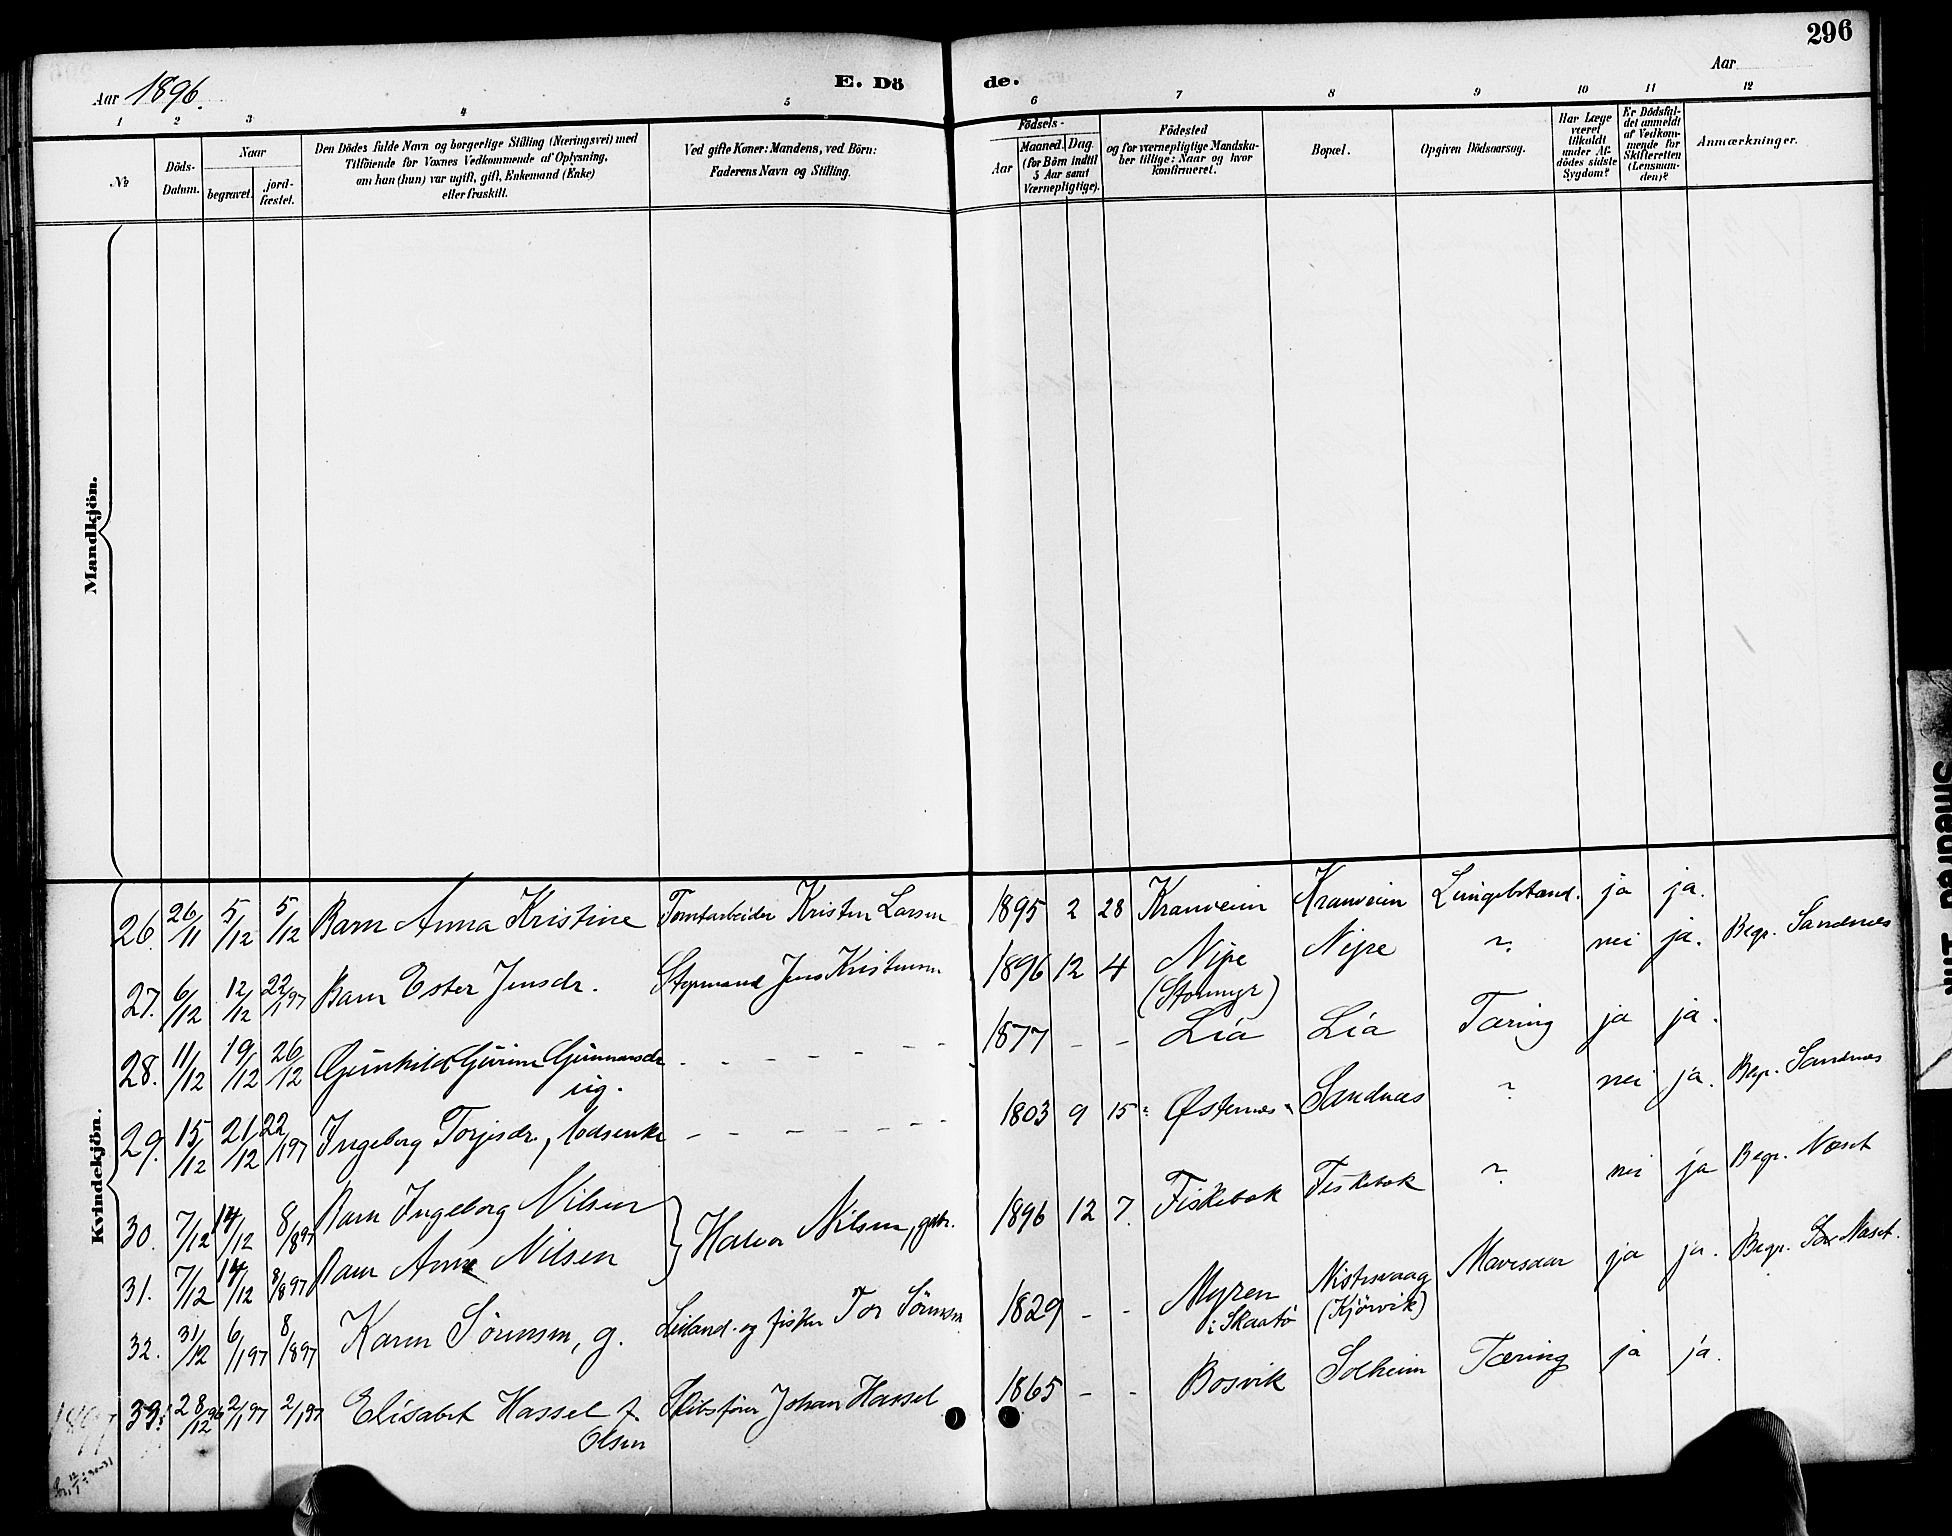 296
Aar 1896.
E. Dö de.
Aar
1 2 3 4 5 6 7 8 9 10 11 12
№
Döds-
Datum.
Naar
begravet.
jord-
fæstet.
Den Dödes fulde Navn og borgerlige Stilling (Næringsvei) med
Tilföiende for Voxnes Vedkommende af Oplysning,
om han (hun) var ugift, gift, Enkemand (Enke)
eller fraskilt.
Ved gifte Koner: Mandens, ved Börn:
Faderens Navn og Stilling.
Födsels-
Aar
Maaned. Dag.
(for Börn indtil
5 Aar samt
Værnepligtige).
Födested
og for værnepligtige Mandska-
ber tillige: Naar og hvor
konfirmeret.
Bopæl.
Opgiven Dödsaarsag.
Har Læge
været
tilkaldt
under Af-
dödes sidste
Sygdom?
Er Dödsfal-
det anmeldt
af Vedkom-
mende for
Skifteretten
(Lensman-
den)?
Anmærkninger.
Mandkjön.
Kvindekjön.
26. 26/11 5/12 5/12 Barn Anna Kristine Tomtarbeider Kristen Larsen 1895 2 28 Kranveien Kranveien Lungebetænd. ja ja.
27. 6/12 12/12 22/1 97 Barn Ester Jensdr. Styrmand Jens Kristensen 1896 12 4 Nipe (Stormyr) Nipe ? nei ja. Begr. Sandnes
28. 11/12 19/12 26/12 Gunhild Gurine Gunnarsdr ug. - - - - - - 1877 - - Lia Lia Tæring ja ja.
29. 15/12 21/12 22/1 97 Ingeborg Torjesdr., - - - - - - 1803 9 15 Østernes Sandnæs ? nei ja. Begr. Sandnes
30. 7/12 14/12 8/8 97 Barn Ingeborg Nilsen } Halvor Nilsen, gbr. 1896 12 7. Fiskebæk Fiskebæk ? nei ja Begr. Næset
31. 7/12 14/12 8/8 97 Barn Anne Nilsen
32. 31/12 6/1 97 8/8 97 Karen Sörensen, g. Leiland. og fisker Tor Sörensen 1829 - - Myren i Skaatö (Kjörvik) Mavesaar ja ja. Begr. Næset.
33. 28/12 96 2/1 97 2/1 97 Elisabet Hassel f. Olsen Skibsfører Johan Hassel 1865 - - Bosvik Solheim Tæring ja ja.
1897